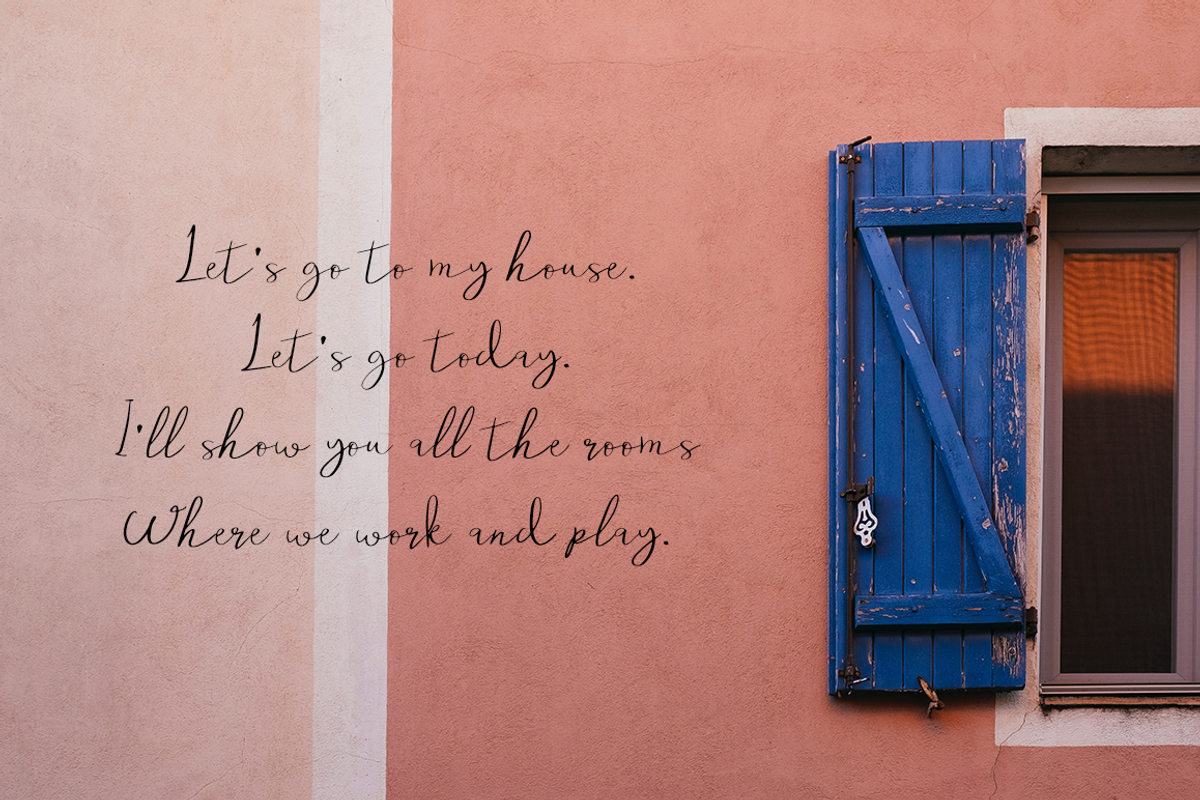 Let's go to my house.
Let's go today.
I'll show you all the rooms
Where we work and play.